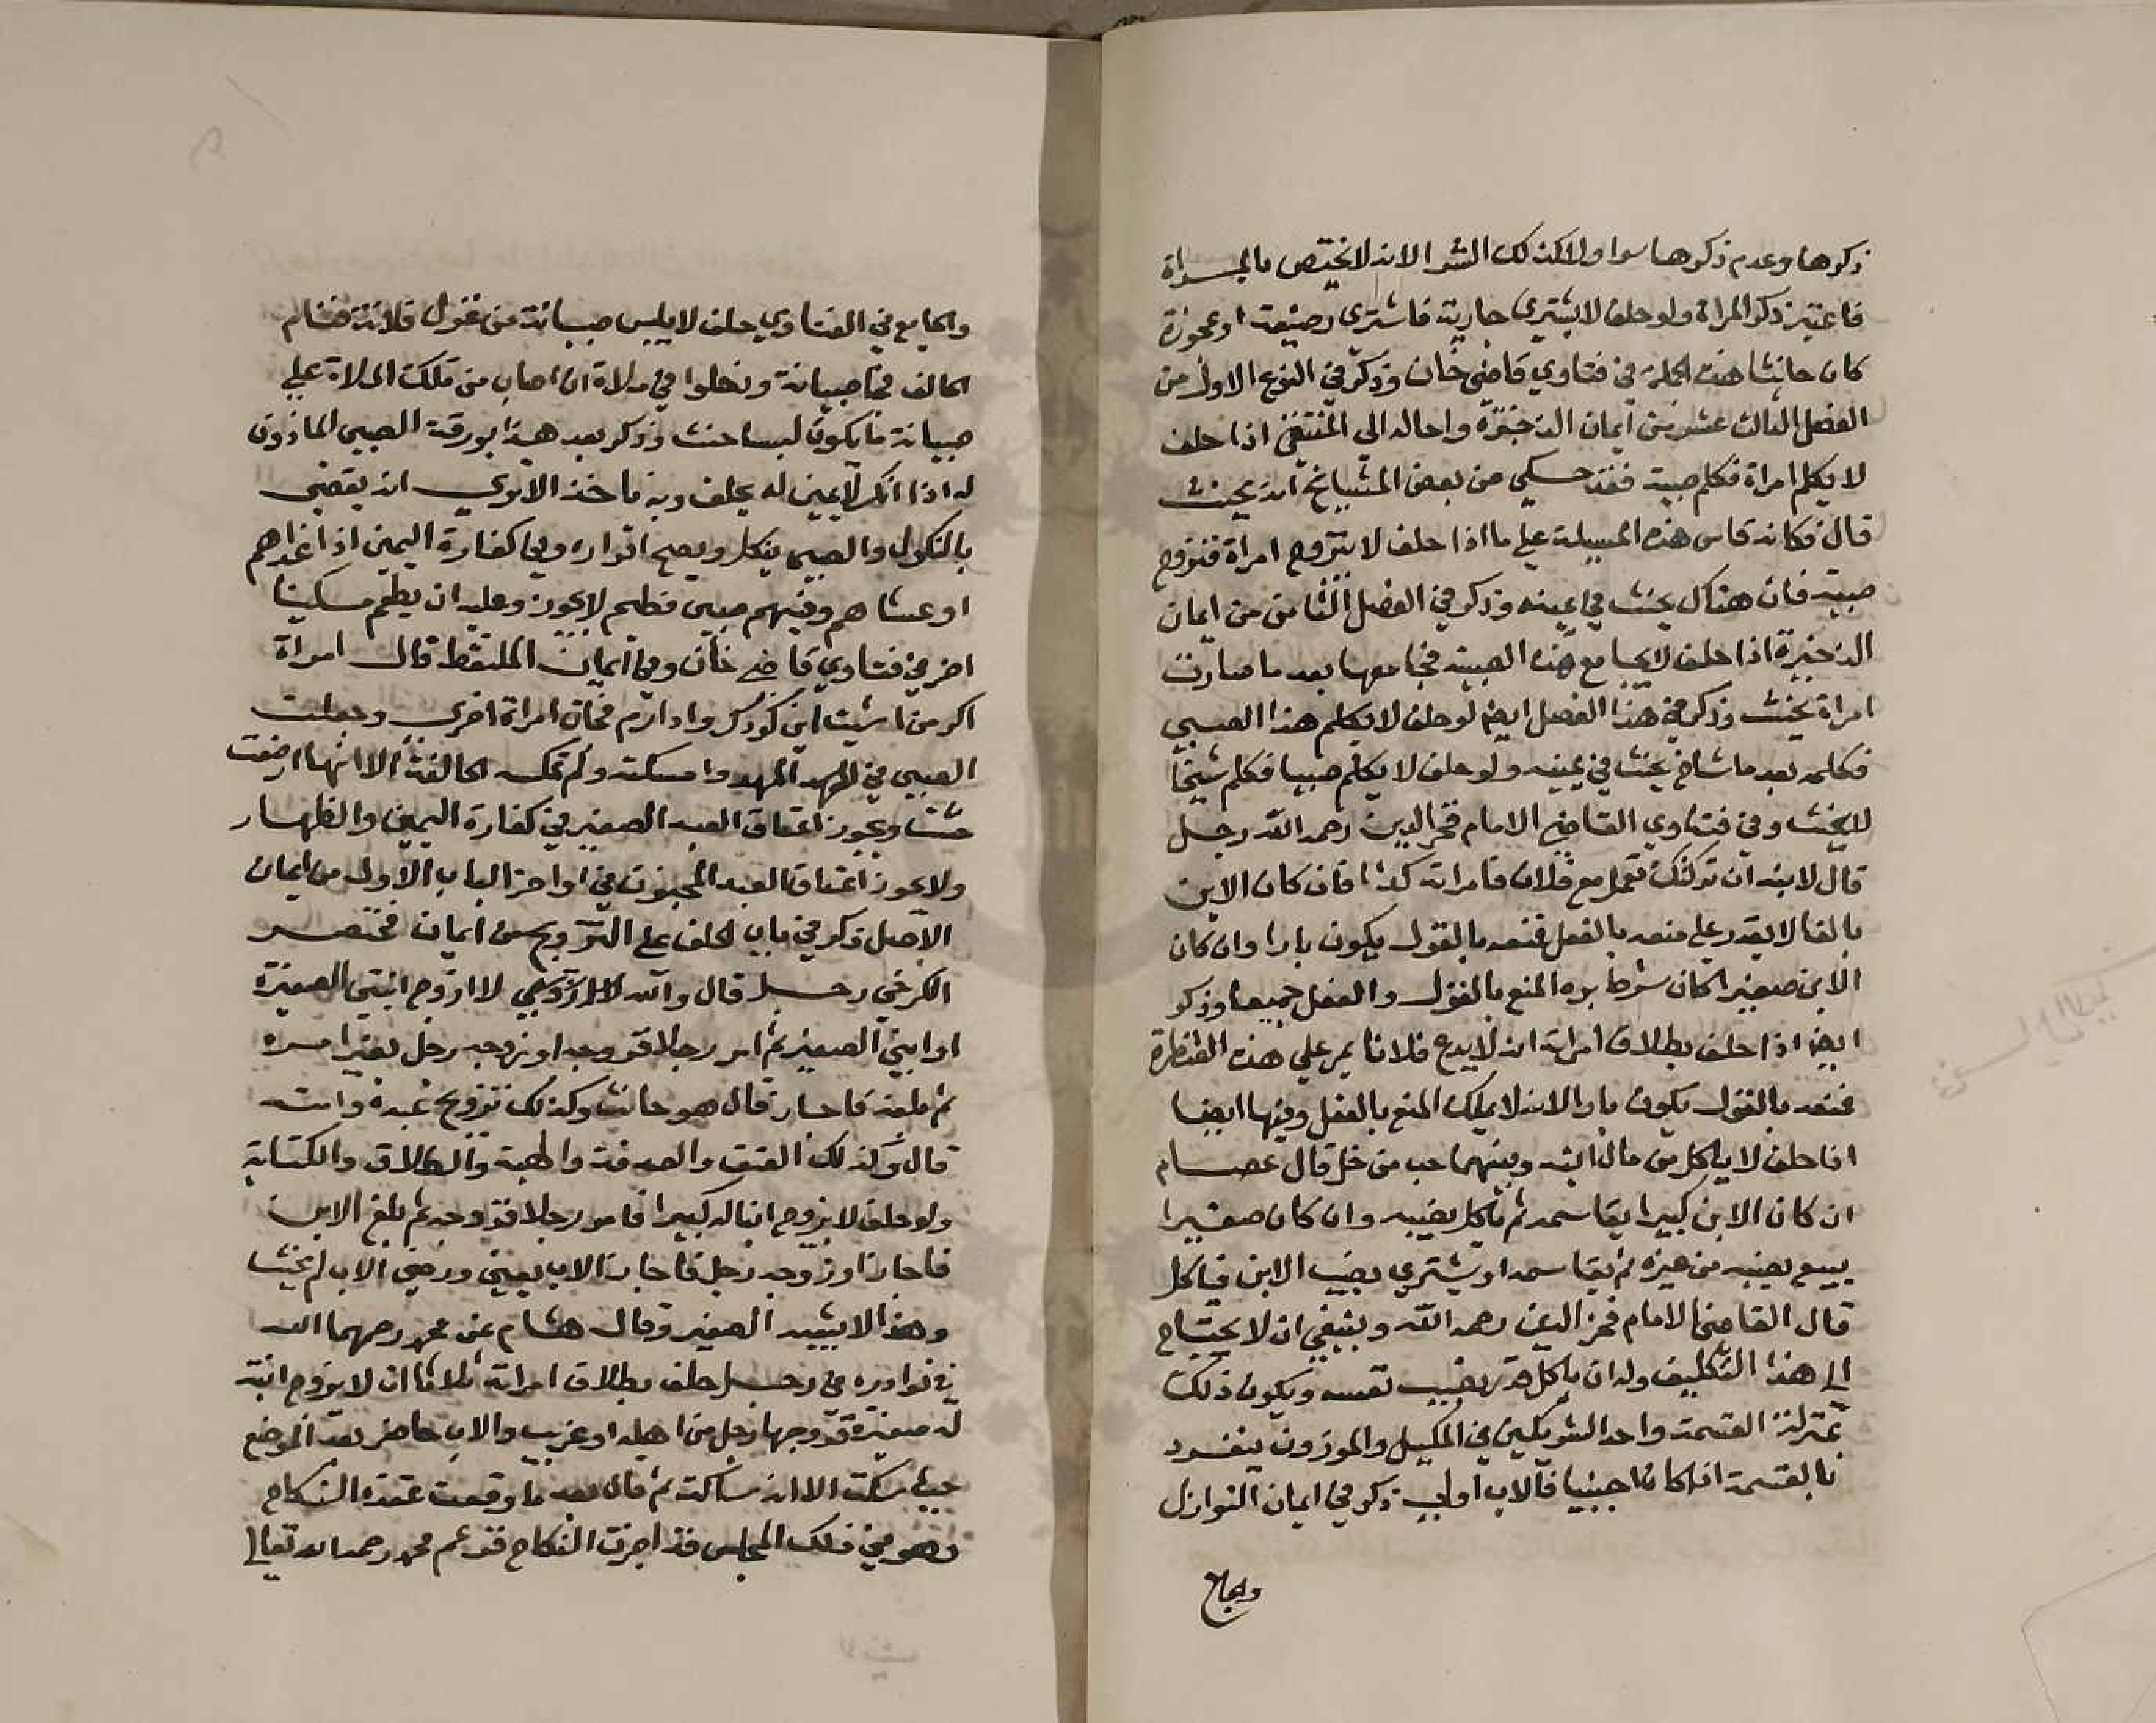 ذكرها وعدم ذكرها سوا ولا كذلك الشرا لانه لا يختص بالمراة
فاعتبر ذكر المراة ولو حلف لا يشتري جارية فاشتري رضيعة او عجوزة
كان حانثا هذه الجملة في فتاوي قاضي خان وذكر في النوع الاول من
الفصل الثالث عشر من ايمان الذخيرة واحاله الي المنتقي اذا حلف
لا يكلم امراة فكلم صبية فقد حكي عن بعض المشيايخ انه يحنث
قال فكانه قاس هذه المسيلة علي ما اذا حلف لا يتزوج امراة فتزوج
صبية فان هناك يحنث في يمينه وذكر في الفصل الثامن من ايمان
الذخيرة اذا حلف لا يجامع هذه الصبية فجامعها بعد ما صارت
امراة يحنث وذكر في هذا الفصل ايضا لو حلف لا يكلم هذا الصبي
فكلمه بعد ما شاخ يحنث في يمينه ولو حلف لا يكلم صبيا فكلم شيخا
لا يحنث وفي فتاوي القاضي الامام فخر الدين رحمه الله رجل
قال لابنه ان تركتك تعمل مع فلان فامراته كذا فان كان الابن
بالغا لا يقدر علي منعه بالفعل فمنعه بالقول يكون بارا وان كان
الابن صغيرا كان شرط بره المنع بالقول والفعل جميعا وذكر
ايضا اذا حلف بطلاق امراته ان لا يدع فلانا يمر علي هذه القنطرة
فمنعه بالقول يكون بارا لانه لا يملك المنع بالفعل وفيها ايضا
اذا حلف لا ياكل من مال ابنه وبينهما حب من خل قال عصام
ان كان الابن كبيرا يقاسمه ثم ياكل نصيبه وان كان صغيرا
يبيع نصيبه من غيره ثم يقاسمه او يشتري نصيب الابن فياكل
قال القاضي الامام فخر الدين رحمه الله وينبغي ان لا يحتاج
الي هذا التكليف وله ان ياكل قدر نصيب نفسه ويكون ذلك
بمنزلة القسمة واحد الشريكين في المكيل والموزون ينفرد
بالقسمة اذا كان اجنبيا فالاب اولي ذكر في ايمان النوازل
والجامع
والجامع في الفتاوي حلف لا يلبس صبيانة من غزل فلانة فنام
الحالف صبيانة ودخلوا في ملاة ان اصاب من تلك الملاة علي
صبيانة ما يكون لبسا حنث وذكر بعد هذا بورقة الصبي الماذون
له اذا انكر لا يمين له يحلف وبه ناخذ الا تري انه يقضي
بالنكول والصبي ينكل ويصح اقراره وفي كفارة اليمين اذا غداهم
او عشاهم وفيهم صبي فطيم لا يجوز وعليه ان يطعم مسكينا
اخر في فتاوي قاضي خان وفي ايمان الملتقط قال امراة
اكر من اين كودك وادارم فجات امراة اخري وجعلت
الصبي في المهد المهد وامسكته ولم تمسكه الحالفة الا انها ارضعت
حنثت ويجوز اعتاق العبد الصغير في كفارة اليمين والظهار
ولا يجوز اعتاق العبد المجنون في اواخر الباب الاول من ايمان
الاصل ذكر في باب الحلف علي التزويج من ايمان مختصر
الكرخي رجل قال والله لا ازوج ابنتي الصغيرة
او ابني الصغير ثم امر رجلا فزوجه او زوجه رجل بغير امره
ثم بلغه فاجاز قال هو حانث وكذلك تزويج عبده وامته
قال وكذلك العتق والصدقة والهبة والطلاق والكتابة
ولو حلف لا يزوج ابنا له كبيرا فامر رجلا فزوجه ثم بلغ الابن
فاجاز او زوجه رجل فاجاز الاب يعني ورضي الاب لم يحنث
وهذا لا يشبه الصغير وقال هشام عن محمد رحمهما الله
في نوادره في رجل حلف بطلاق امراته ثلاثا ان لا يزوج ابنة
له صغيرة فزوجها رجل من اهله او غريب والاب حاضر بعد الموضع
حيث سكت الا انه ساكت ثم قال بعد ما وقعت عقدة النكاح
وهو في ذلك المجلس قد اجزت النكاح فزعم محمد رحمه الله تعالي